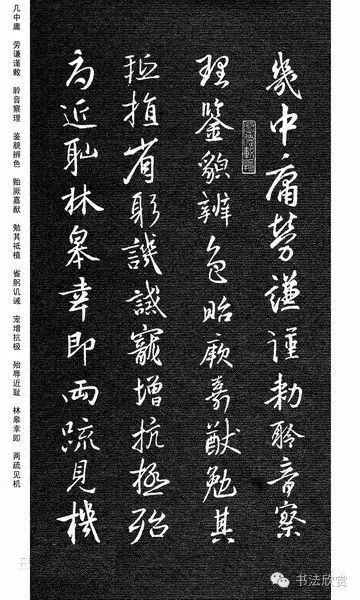 幾中庸勞謙謹勅聆音察
理鑒貌辨色貽厥嘉猷勉其
祗植省躬譏誡寵增抗極殆
辱近耻林皋幸即兩疏見機
几中庸 劳谦谨敕 聆音察理 鉴貌辨色 贻厥嘉猷 勉其祗植 省躬讥诫 宠增抗极 殆辱近耻 林皋幸即 两疏见机
书法欣赏